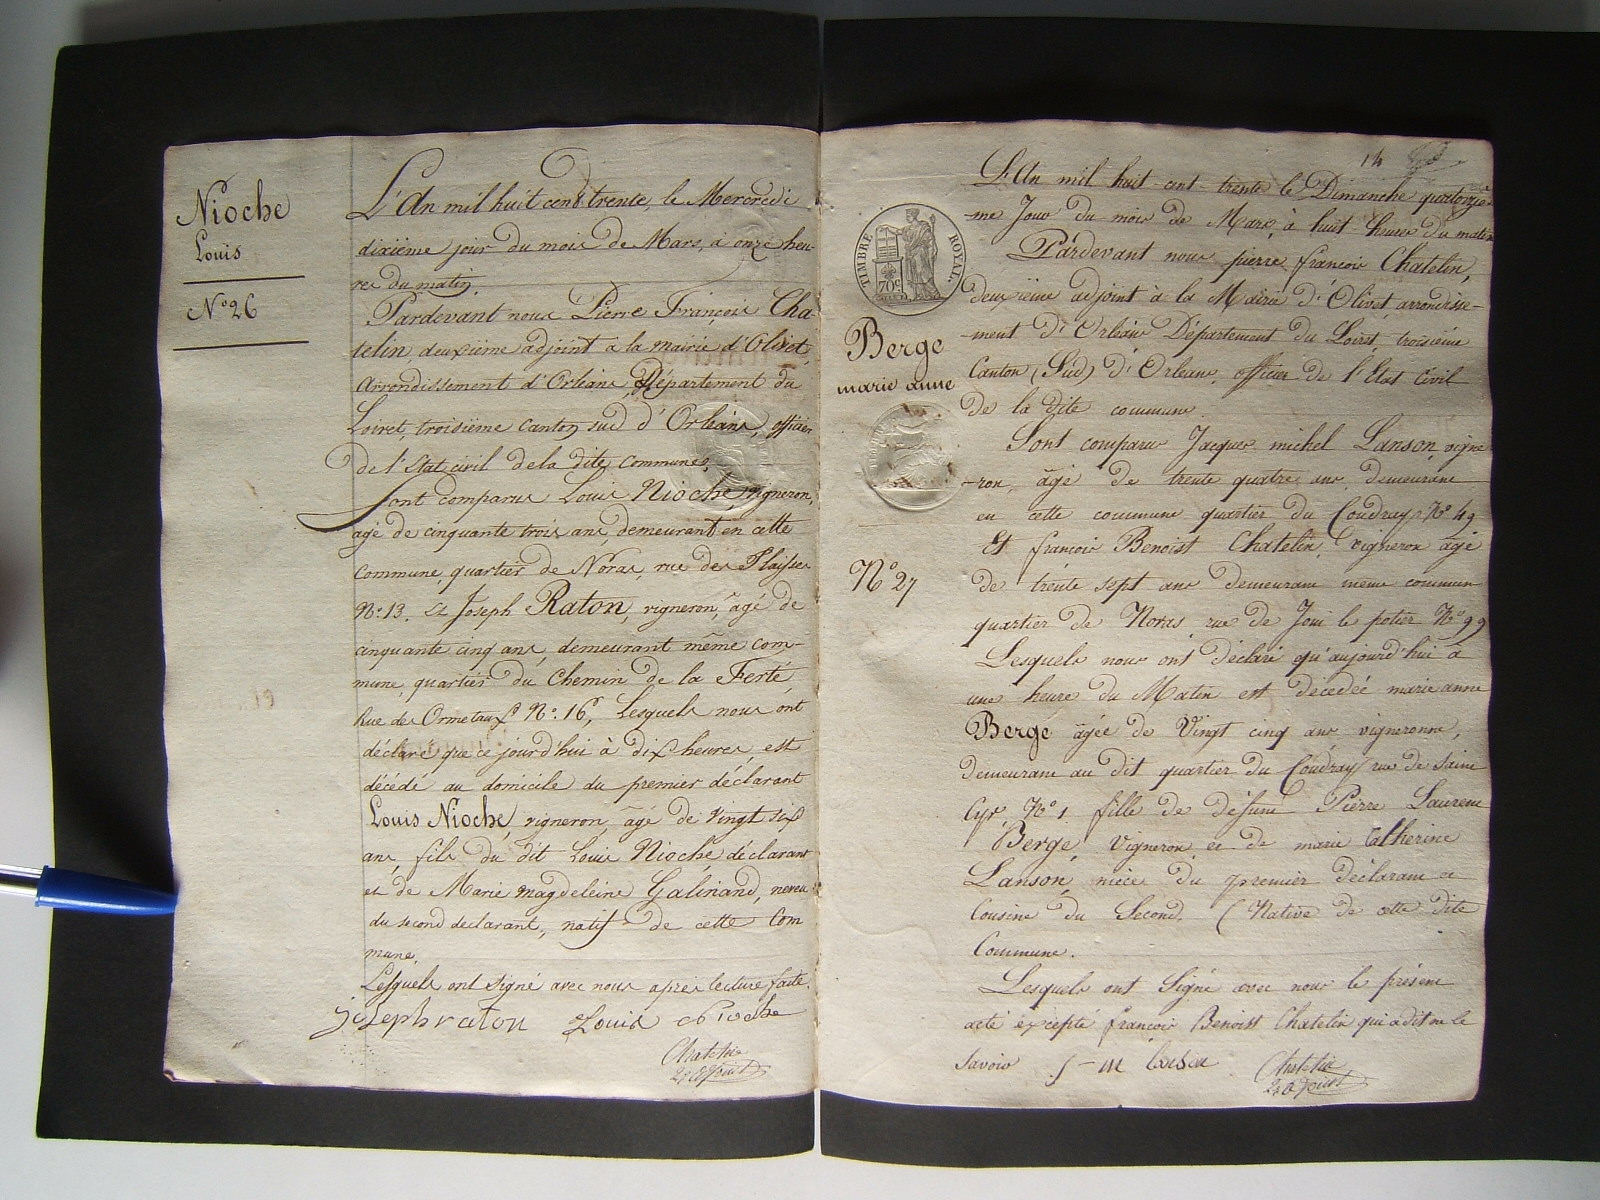 Nioche
Louis
N.° 26
L'An mil huit cent trente, le Mercredi
dixième jour du mois de Mars, à onze heu-
res du matin.
Pardevant nous Pierre François Cha
telin, deuxième adjoint à la mairie d'Olivet,
Arrondissement d'Orléans, Département du
Loiret, troisième canton sud d'Orléans, officier
de l'Etat civil de la dite commune.
Sont comparus Louis Nioche, vigneron,
agé de cinquante trois ans, demeurant en cette
Commune, quartier de Noras, rue des Plaisses
N.° 13. et Joseph Raton, vigneron, âgé de
cinquante cinq ans, demeurant même com-
mune, quartier du Chemin de la Ferté,
Rue des Ormeteaux N.° 16, Lesquels nous ont
déclaré que ce jourd'hui à dix heures, est
décédé au domicile du premier déclarant
Louis Nioche, vigneron, âgé de vingt six
ans, fils du dit Louis Nioche déclarant
et de Marie magdeleine Galinand, neveu
du second declarant, natif de cette Com
mune.
Lesquels ont signé avec nous après lecture faite.
joseph raton Louis Nioche
Chatelin
2.e Adjoint
14
TIMBRE ROYAL.
70c
Berge
marie anne
N.° 27
L'An mil huit cent trente le Dimanche quatorziè-
-me Jour du mois de Mars, à huit heures du matin
Pardevant nous pierre françois Chatelin,
deuxième adjoint à la Mairie d'Olivet, arrondisse-
-ment d'Orléans Département du Loiret, troisième
Canton (Sud) d'Orleans, officier de l'Etat Civil
de la dite commune.
Sont comparus Jacques michel Lanson, vigne
-ron, âgé de trente quatre ans, demeurant
en cette commune quartier du Coudray N.° 49
Et françois Benoist Chatelin, vigneron âgé
de trente sept ans demeurant même commune
quartier de Noras, rue de Joui le potier N.° 99
Lesquels nous ont déclaré qu'aujourd'hui à
une heure du Matin est décédée marie anne
Berge âgée de Vingt cinq ans, vigneronne,
demeurant au dit quartier du Coudray rue de Saint
Cyr, N.° 1 fille de défunt Pierre Laurent
Berge, Vigneron et de marie Catherine
Lanson, nièce du premier déclarant et
Cousine du Second. (Native de cette dite
Commune.
Lesquels ont Signé avec nous le présent
acte excepté françois Benoist Chatelin qui a dit ne le
Savoir J-M lanson Chatelin
2.e Adjoint